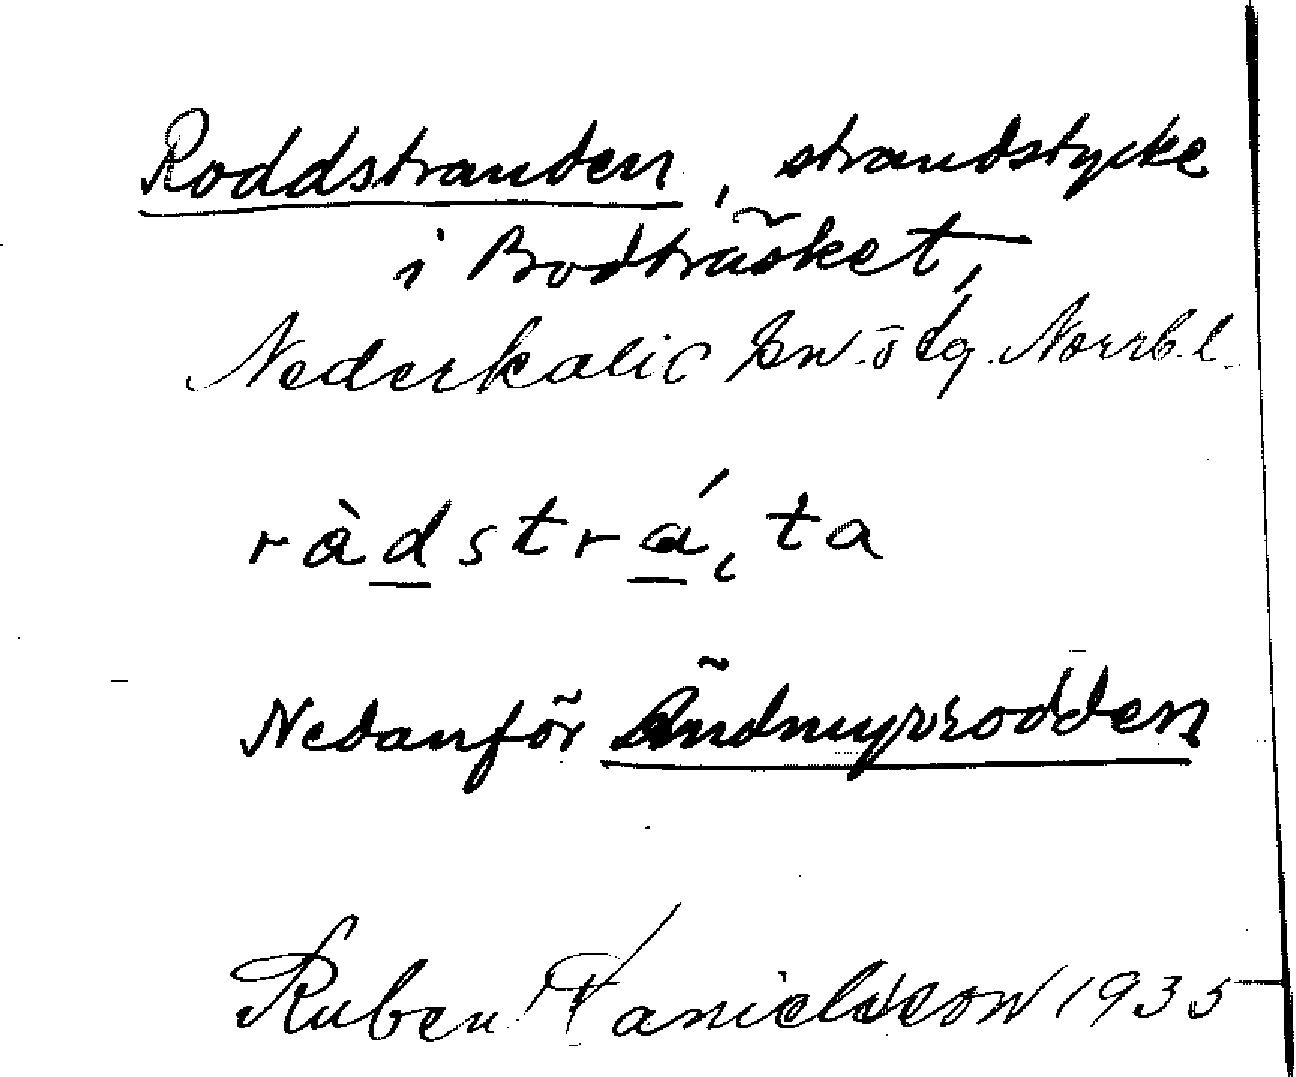 Roddstranden, strandstycke
i Bodträsket,
Nederkalix sn. ö tg. Norrb. l.
ràdstrá, ta
Nedanför Ändmyrrodden
Ruben Danielsson 1935